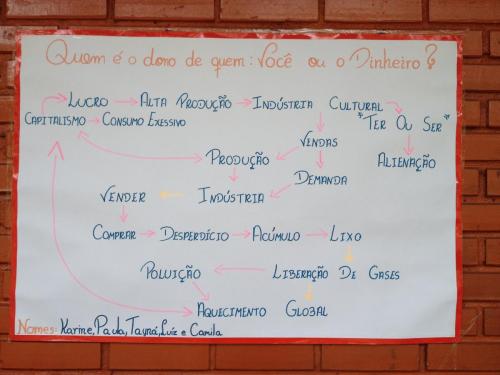 Quem é o dono de quem: Você ou o Dinheiro?
Lucro Alta Produção Indústria Cultural
Capitalismo Consumo Exessivo "Ter Ou Ser"
Vendas
Produção Alienação
Demanda
Vender Indústria
Comprar Desperdício Acúmulo Lixo
Poluição Liberação De Gases
Aquecimento Global
Nomes: Karine, Paula, Tayná, Luiz e Camila